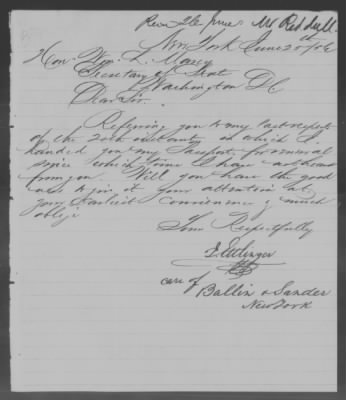 Recd 26 June Mr Reddall
New York June 25/56
Hon. Wm. L. Marcy
Secretary of State
Washington DC
Dear Sir.
Referring you to my last respect
of the 20th instant, in which I
handed you my Passport, for renewal
since which time I have not heard
from you. Will you have the good
ness to give it your attention at
your earliest convenience & much
oblige
Your Respectfully
care of
Ballin & Sander
New York